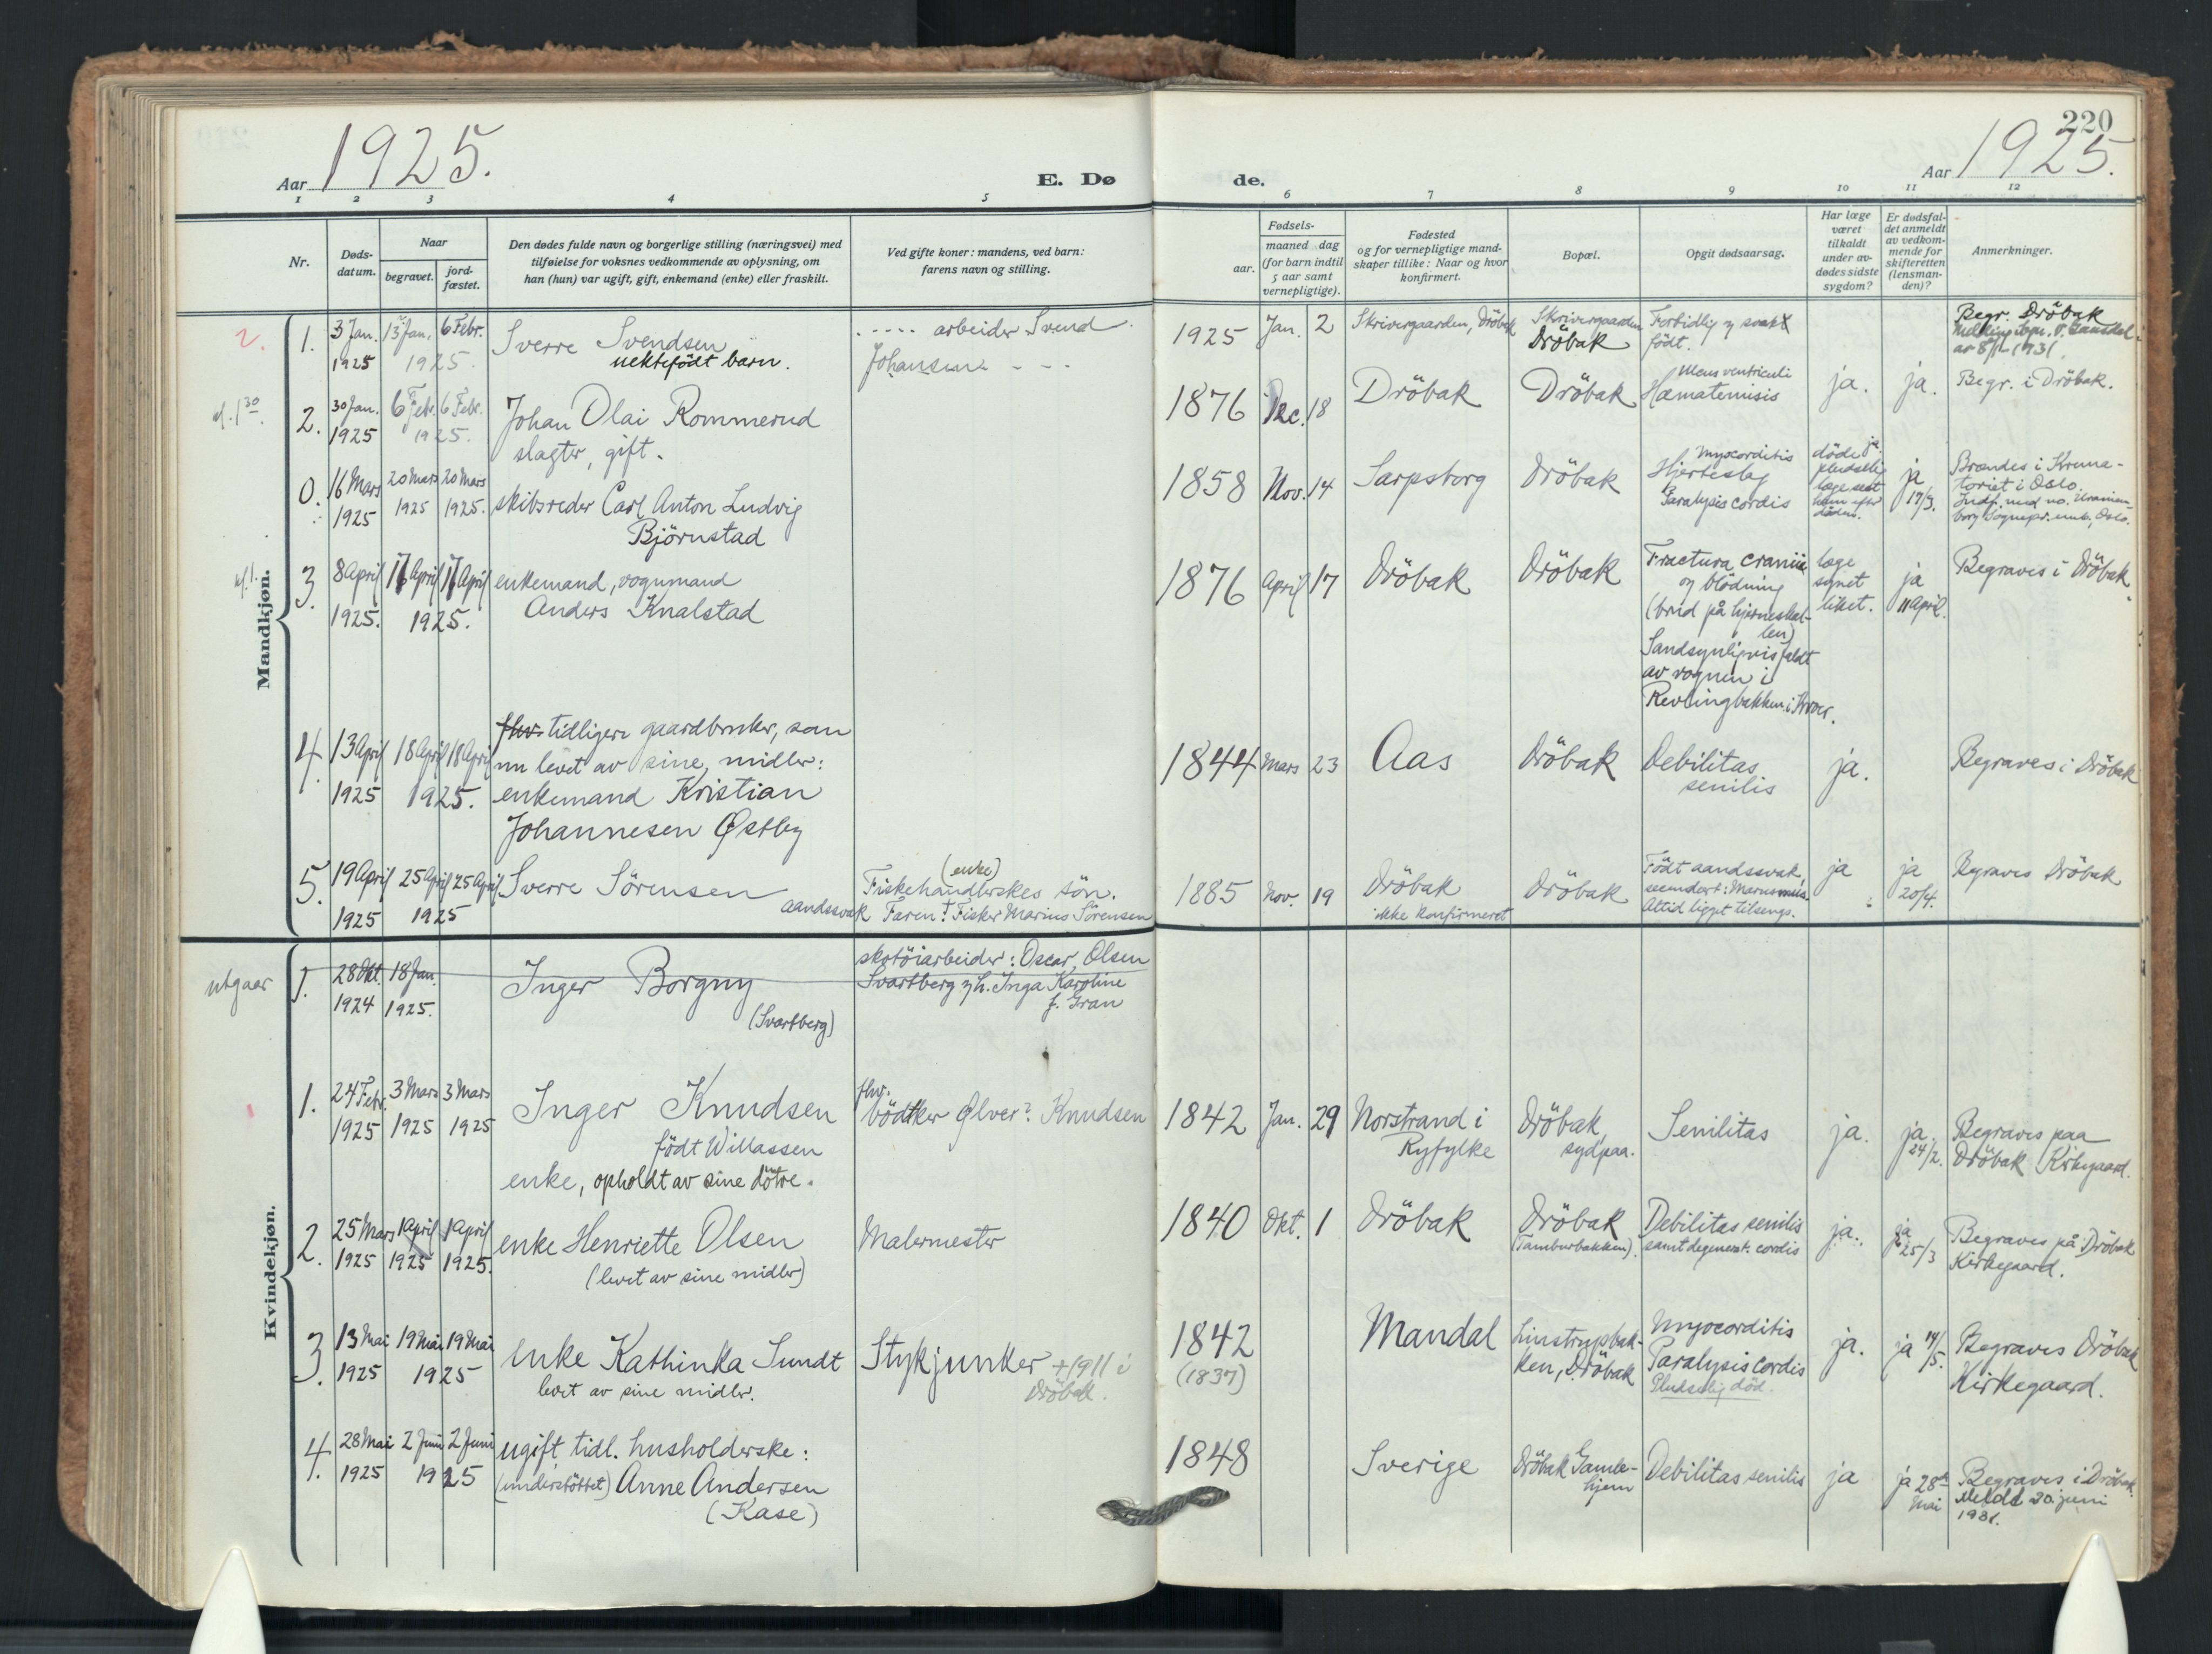 220
Aar 1925.
E. Dø
de.
Aar 1925.
1 2 3 4 5 6 7 8 9 10 11 12
Nr.
Døds-
datum.
Naar
begravet.
jord-
fæstet.
Den dødes fulde navn og borgerlige stilling (næringsvei) med
tilføielse for voksnes vedkommende av oplysning, om
han (hun) var ugift, gift, enkemand (enke) eller fraskilt.
Ved gifte koner: mandens, ved barn:
farens navn og stilling.
Fødsels-
aar.
maaned dag
(for barn indtil
5 aar samt
vernepligtige).
Fødested
og for vernepligtige mand-
skaper tillike: Naar og hvor
konfirmert.
Bopæl.
Opgit dødsaarsag.
Har læge
været
tilkaldt
under av-
dødes sidste
sygdom?
Er dødsfal-
det anmeldt
av vedkom-
mende for
skifteretten
(lensman-
den)?
Anmerkninger.
Mandkjøn.
2.
1.
3 Jan.
1925
13 Jan. 6 Febr.
1925.
Sverre Svendsen
uektefödt barn.
..... arbeider Svend
Johansen - - -
1925 Jan. 2
Skrivergaarden, Dröbak
Skrivergaarden
Dröbak
Fortidlig og svakt
födt.
Begr. Dröbak
1931.
kl. 1 30
2.
30 Jan.
1925
6 Febr. 6 Febr.
1925.
Johan Olai Rommerud
slagter, gift.
1876 Dec. 18
Dröbak
Dröbak
Ulcus ventriculi
Hæmatemisis
ja.
ja.
Begr. i Dröbak.
0.
16 Mars
1925
20 Mars
1925
20 Mars
1925.
skibsreder Carl Anton Ludvig
Björnstad
1858 Nov. 14
Sarpsborg
Dröbak
Myocorditis
Hjerteslag
Paralysis cordis
döde ja
pludselig
læge sett
ham efter
döden.
ja
17/3.
Brændes i Krema-
toriet i Oslo.
Indf. med no. Uranien-
borg Sognepr. emb., Oslo.
kl. 1.
3.
8 April
1925.
17 April 17 April
1925.
enkemand, vognmand
Anders Knalstad
1876 April 17
Dröbak
Dröbak
Fractura craniie
og blödning
(brud på hjerneskal-
len)
Sandsynligvis faldt
av vognen i
Revlingbakken i Kroer.
læge
synet
liket.
ja
11 April.
Begraves i Dröbak.
4.
13 April
1925
18 April 18 April
1925.
fhv. tidligere gaardbruker, som
nu levet av sine midler:
enkemand Kristian
Johannesen Østby
1844 Mars 23
Aas
Dröbak
Debilitas
senilis
ja.
Begraves i Dröbak
5.
19 April
1925
25 April 25 April
1925
Sverre Sörensen
aandssvak
(enke)
Fiskehandlerskes sön.
Faren: † Fisker Marius Sörensen
1885 Nov. 19
Dröbak
ikke konfirmeret
Dröbak
Födt aandssvak,
Altid ligget tilsengs.
ja
ja
20/4.
Begraves Dröbak
Kvindekjøn.
utgaar
1.
28 Okt.
1924
18 Jan.
1925.
Inger Borgny
(Svartberg)
skotöiarbeider: Oscar Olsen
Svartberg og h. Inga Karoline
f. Gran
1.
24 Febr.
1925
3 Mars
1925
3 Mars
1925
Inger Knudsen
födt Willassen
enke, opholdt av sine dötre.
fhv.
bödtker Ølver? Knudsen
1842 Jan. 29
Norstrand i
Ryfylke
Dröbak
sydpaa.
Senilitas
ja.
ja.
24/2.
Begraves paa
Dröbak Kirkegaard.
2.
25 Mars
1925
1 April
1925
1 April
1925.
enke Henriette Olsen
(levet av sine midler)
Malermester
1840 Okt. 1
Dröbak
Dröbak
(Tamburbakken).
Debilitas senilis
samt degenerat. cordis
ja.
ja
25/3
Begraves på Dröbak
Kirkegaard.
3.
13 Mai
1925
19 Mai 19 Mai
1925
enke Kathinka Sundt
levet av sine midler.
Stykjunker + 1911 i
Dröbak.
1842
(1837)
Mandal
Linstrupbak-
ken, Dröbak
Myocorditis
Paralysis cordis
Pludselig död.
ja.
ja 14/5.
Begraves Dröbak
Kirkegaard.
4.
28 Mai
1925
2 Juni 2 Juni
1925
ugift tidl. husholderske:
(understöttet) Anne Andersen
(Kase)
1848
Sverige
Dröbak Gamle-
hjem
Debilitas senilis
ja
ja 28de
Mai
Begraves i Dröbak.
Meldt 30 juni
1931.